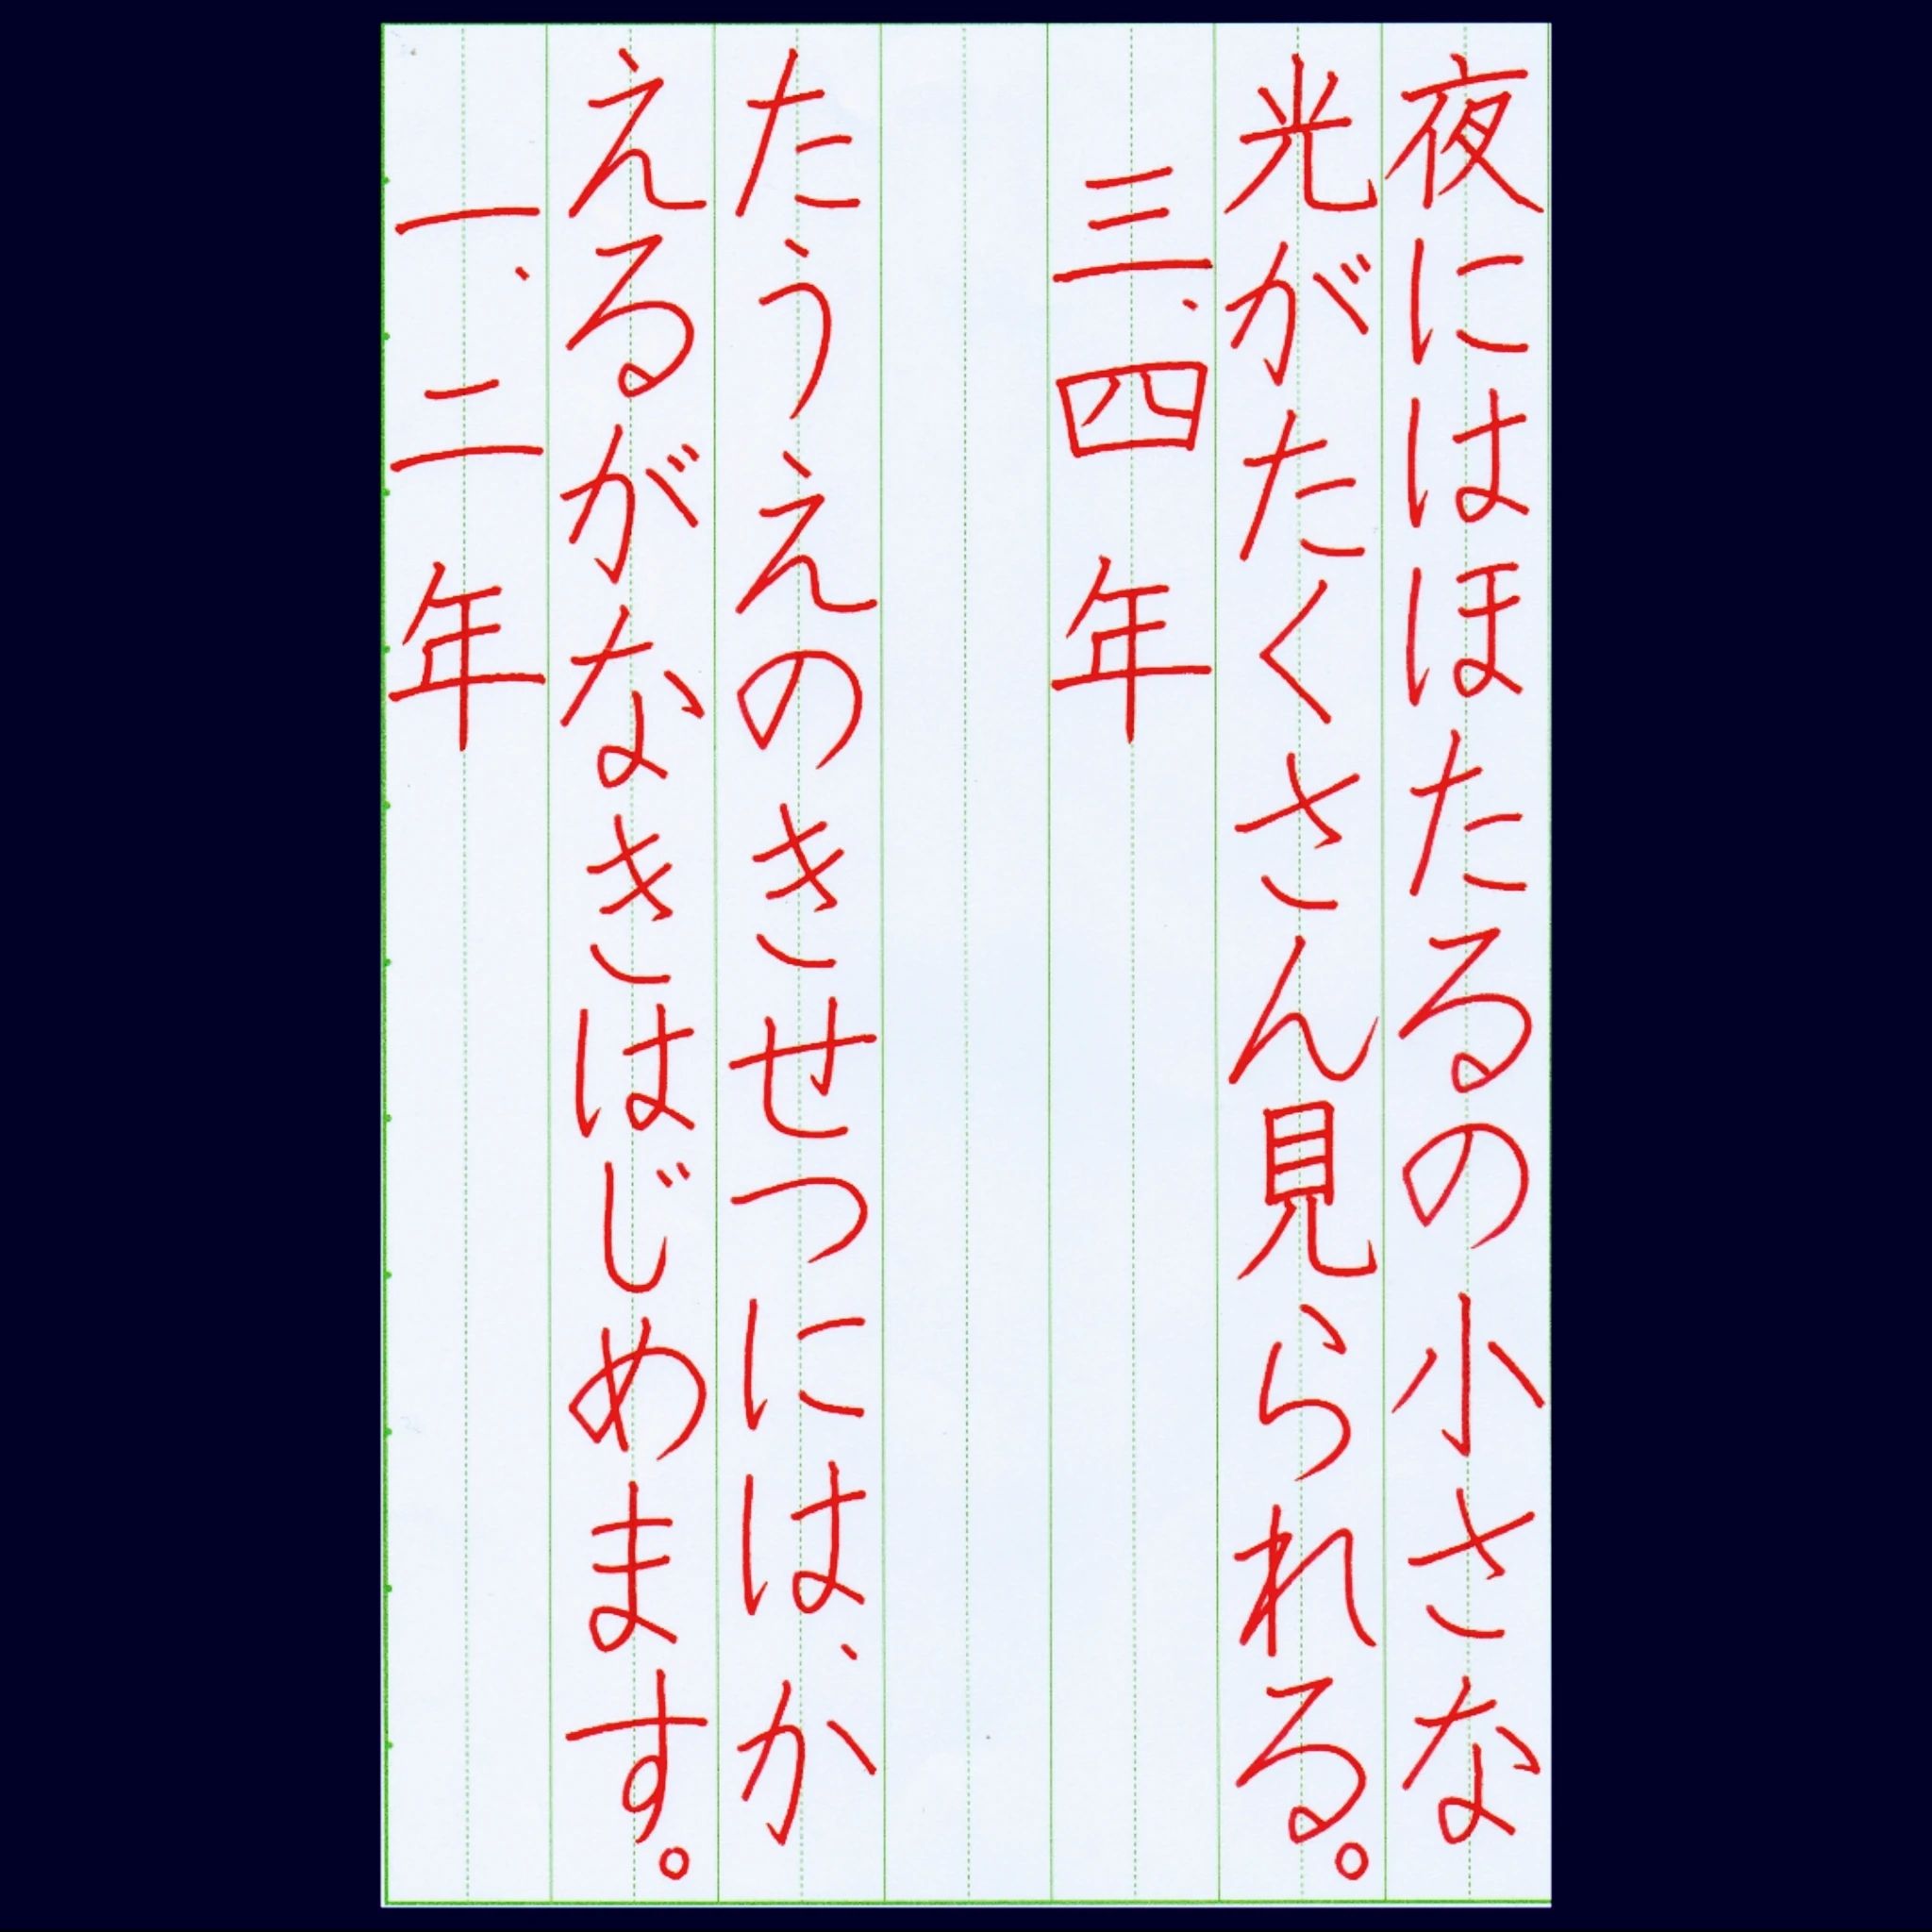 夜にはほたるの小さな
光がたくさん見られる。
三、四年
たうえのきせつには、か
えるがなきはじめます。
一、二年